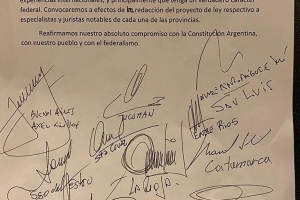 experiencias internacionales, y principalmente que tenga un verdadero carácter
federal. Convocaremos a efectos de la redacción del proyecto de ley respectivo a
especialistas y juristas notables de cada una de las provincias.
Reafirmamos nuestro absoluto compromiso con la Constitución Argentina,
con nuestro pueblo y con el federalismo.
SAN LUIS
TUCUMÁN
BUENOS AIRES
AXEL KICILLOF
ENTRE RIOS
STA CRUZ
Catamarca
LA RIOJA